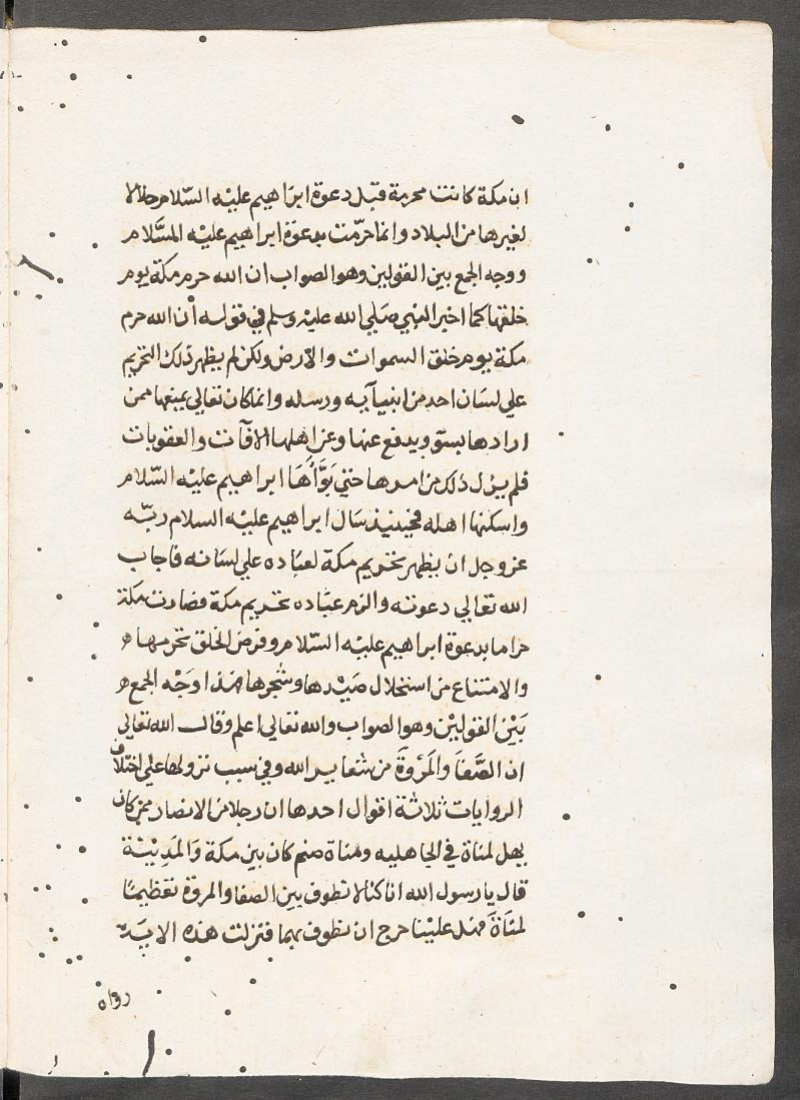 ان مكة كانت محرمة قبل دعوة ابراهيم عليه السّلام حلالا
لغيرها من البلاد وانما حرّمت بدعوة ابراهيم عليه السَّلام
ووجه الجمع بين القولين وهو الصواب ان الله حرم مكة يوم
خلقها كما اخبر النبي صَلي الله عليه وسلم في قوله أن الله حرم
مكة يوم خلق السموات والارض ولكن لم يظهر ذلك التحريم
علي لسَان احد من انبيآيه ورسله وانما كان تعالي يمنعها ممن
ارادها بسوٓ ويدفع عنها وعن اهلها الآفآت والعقوبات
فلم يزل ذلك من امرها حتي بَوَّأَهَا ابراهيم عليه السّلام
واسكنها اهله فحينيذ سَال ابراهيم عليْه السلام ربّه
عز وجل ان يظهر تحريم مكة لعبَاده علي لسَانه فاجاب
الله تعالي دعوته والزم عبَاده تحريم مكة فصارت مكة
حراما بدعوة ابراهيم عليْه السّلام وفرض الخلق تحرمها ه
والامتناع من استحلال صَيْدها وشجرها هذا وَجْه الجمع ه
بَيْن القوليْن وهو الصواب والله تعالي اعلم وقال الله تعالي
ان الصَّفَا والمَرْوةَ من شعاير الله وفي سبب نزولها علي اختلاف
الروايات ثلاثة اقوال احدها ان رجلا من الانصار ممن كان
يهل لمناة في الجاهليه ومناة صنم كان بين مكة وَالمَدِيْنة
قال يارسول الله انا كنا لا نطوف بين الصفا والمروة تعظيمًا
لمنَاةَ فهل عليْنا حرج ان نطوف بهما فنزلت هذه الايَة
رواه